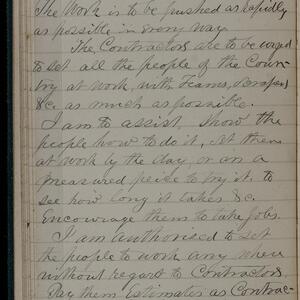 The Work is to be pushed as rapidly
as possible in every way
The Contractors are to be urged
to set all the people of the Coun-
try at work, with Teams, Scrapers
&c as much as possible.
I am to assist, show the
people how to do it, set them
at work by the day, or on a
measured peice to try it, to
see how long it takes &c
Encourage them to take jobs.
I am authorised to set
the people to work any where
without regard to Contractors
Pay them Estimates as Contrac-